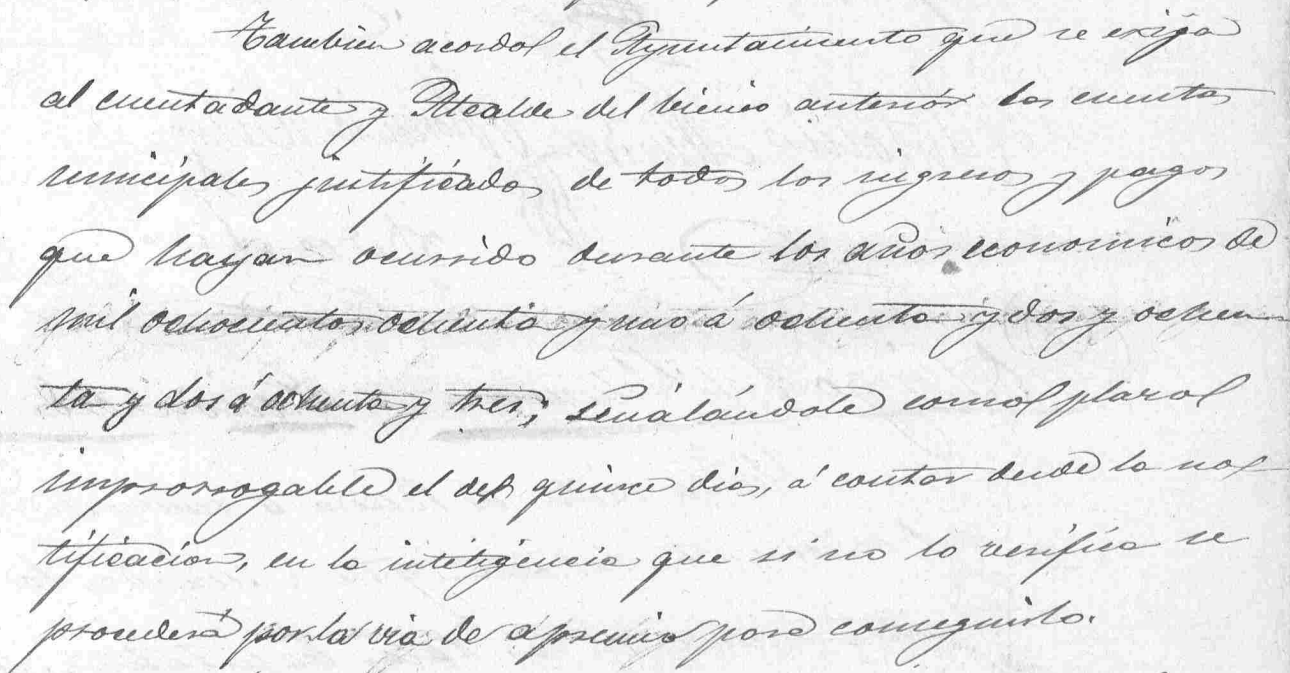 Tambien acordó el Ayuntamiento que se exija
al cuentadante y Alcalde del bienio anterior las cuentas
municipales justificadas de todos los ingresos y pagos
que hayan ocurrido durante los años economicos de
mil ochocientos ochenta y uno á ochenta y dos y ochen-
ta y dos á ochenta y tres; señalándole como plazo
improrrogable el de quince dias, á contar desde la no-
tificacion, en la inteligencia que si no lo verifica se
procederá por la via de apremio para conseguirlo.